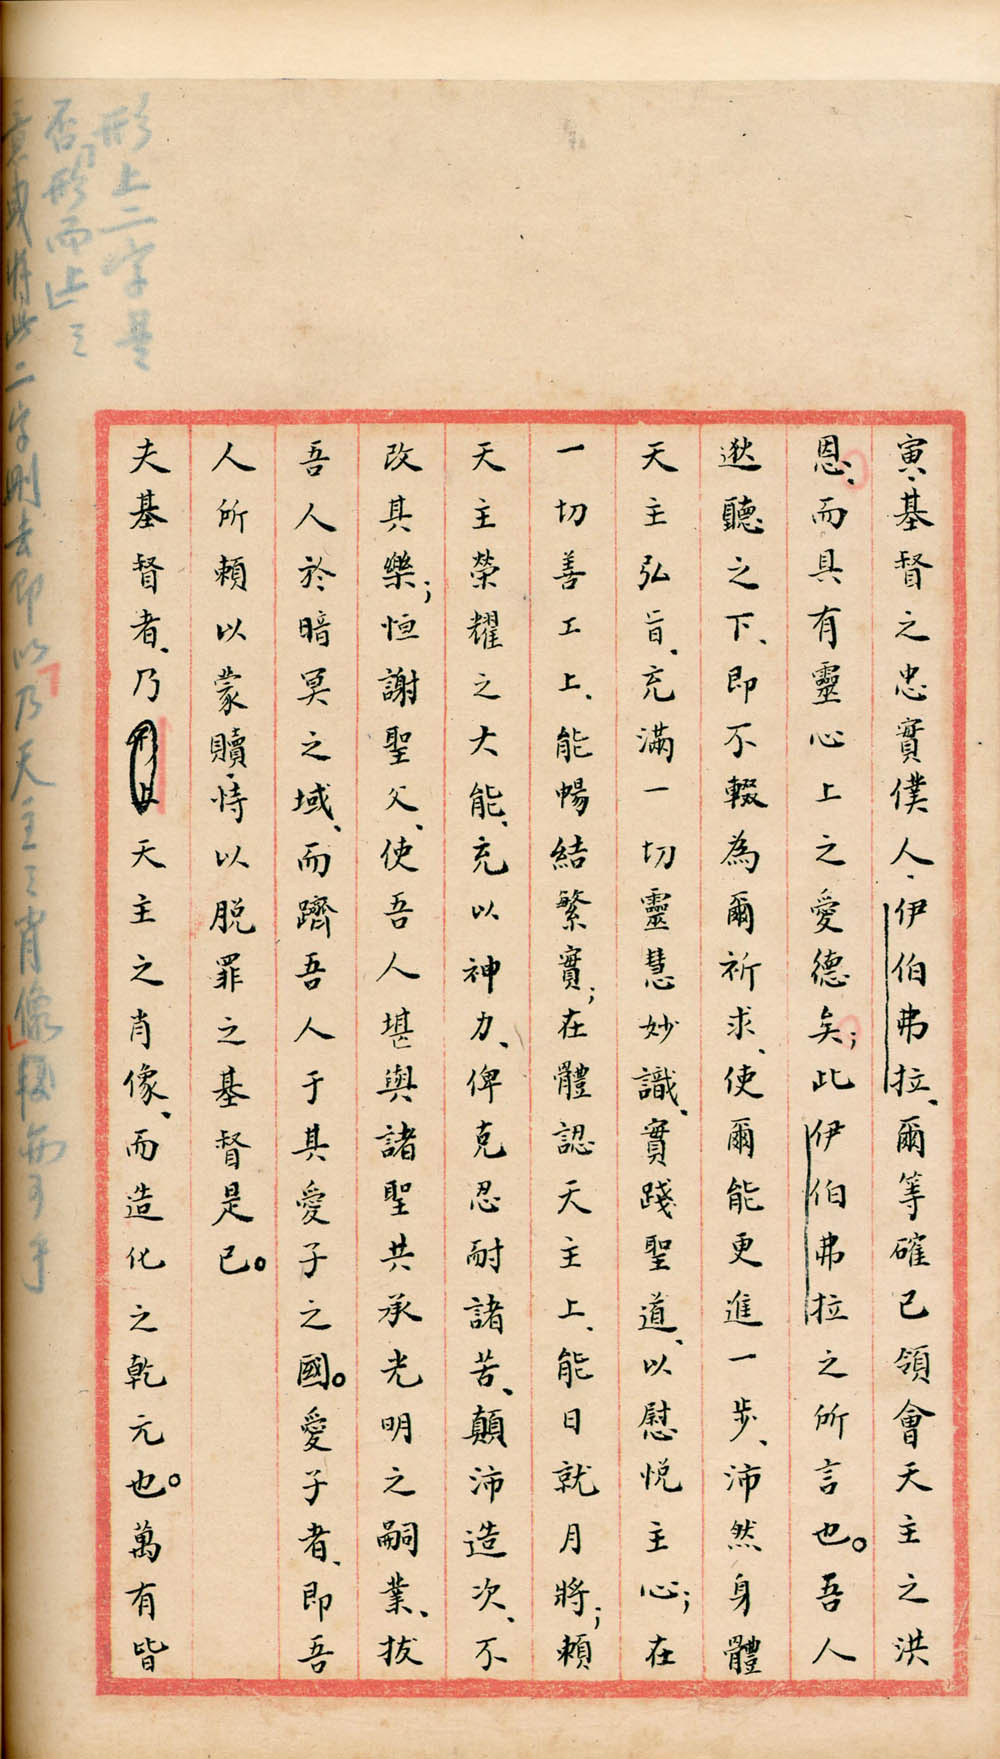 寅、基督之忠實僕人、伊伯弗拉、爾等確已領會天主之洪
恩、而具有靈心上之愛德矣；此伊伯弗拉之所言也。吾人
逖聽之下、即不輟為爾祈求、使爾能更進一步、沛然身體
天主弘旨、充滿一切靈慧妙識、實踐聖道、以慰悅主心；在
一切善工上、能暢結繁實；在體認天主上、能日就月將；賴
天主榮耀之大能、充以神力、俾克忍耐諸苦、顛沛造次、不
改其樂；恒謝聖父、使吾人堪與諸聖共承光明之嗣業、拔
吾人於暗冥之域、而躋吾人于其愛子之國。愛子者、即吾
人所賴以蒙贖、恃以脫罪之基督是已。
夫基督者、乃天主之肖像、而造化之乾元也。萬有皆
形上二字是
否「形而上」之
意或將此二字刪去即以「乃天主之肖像」